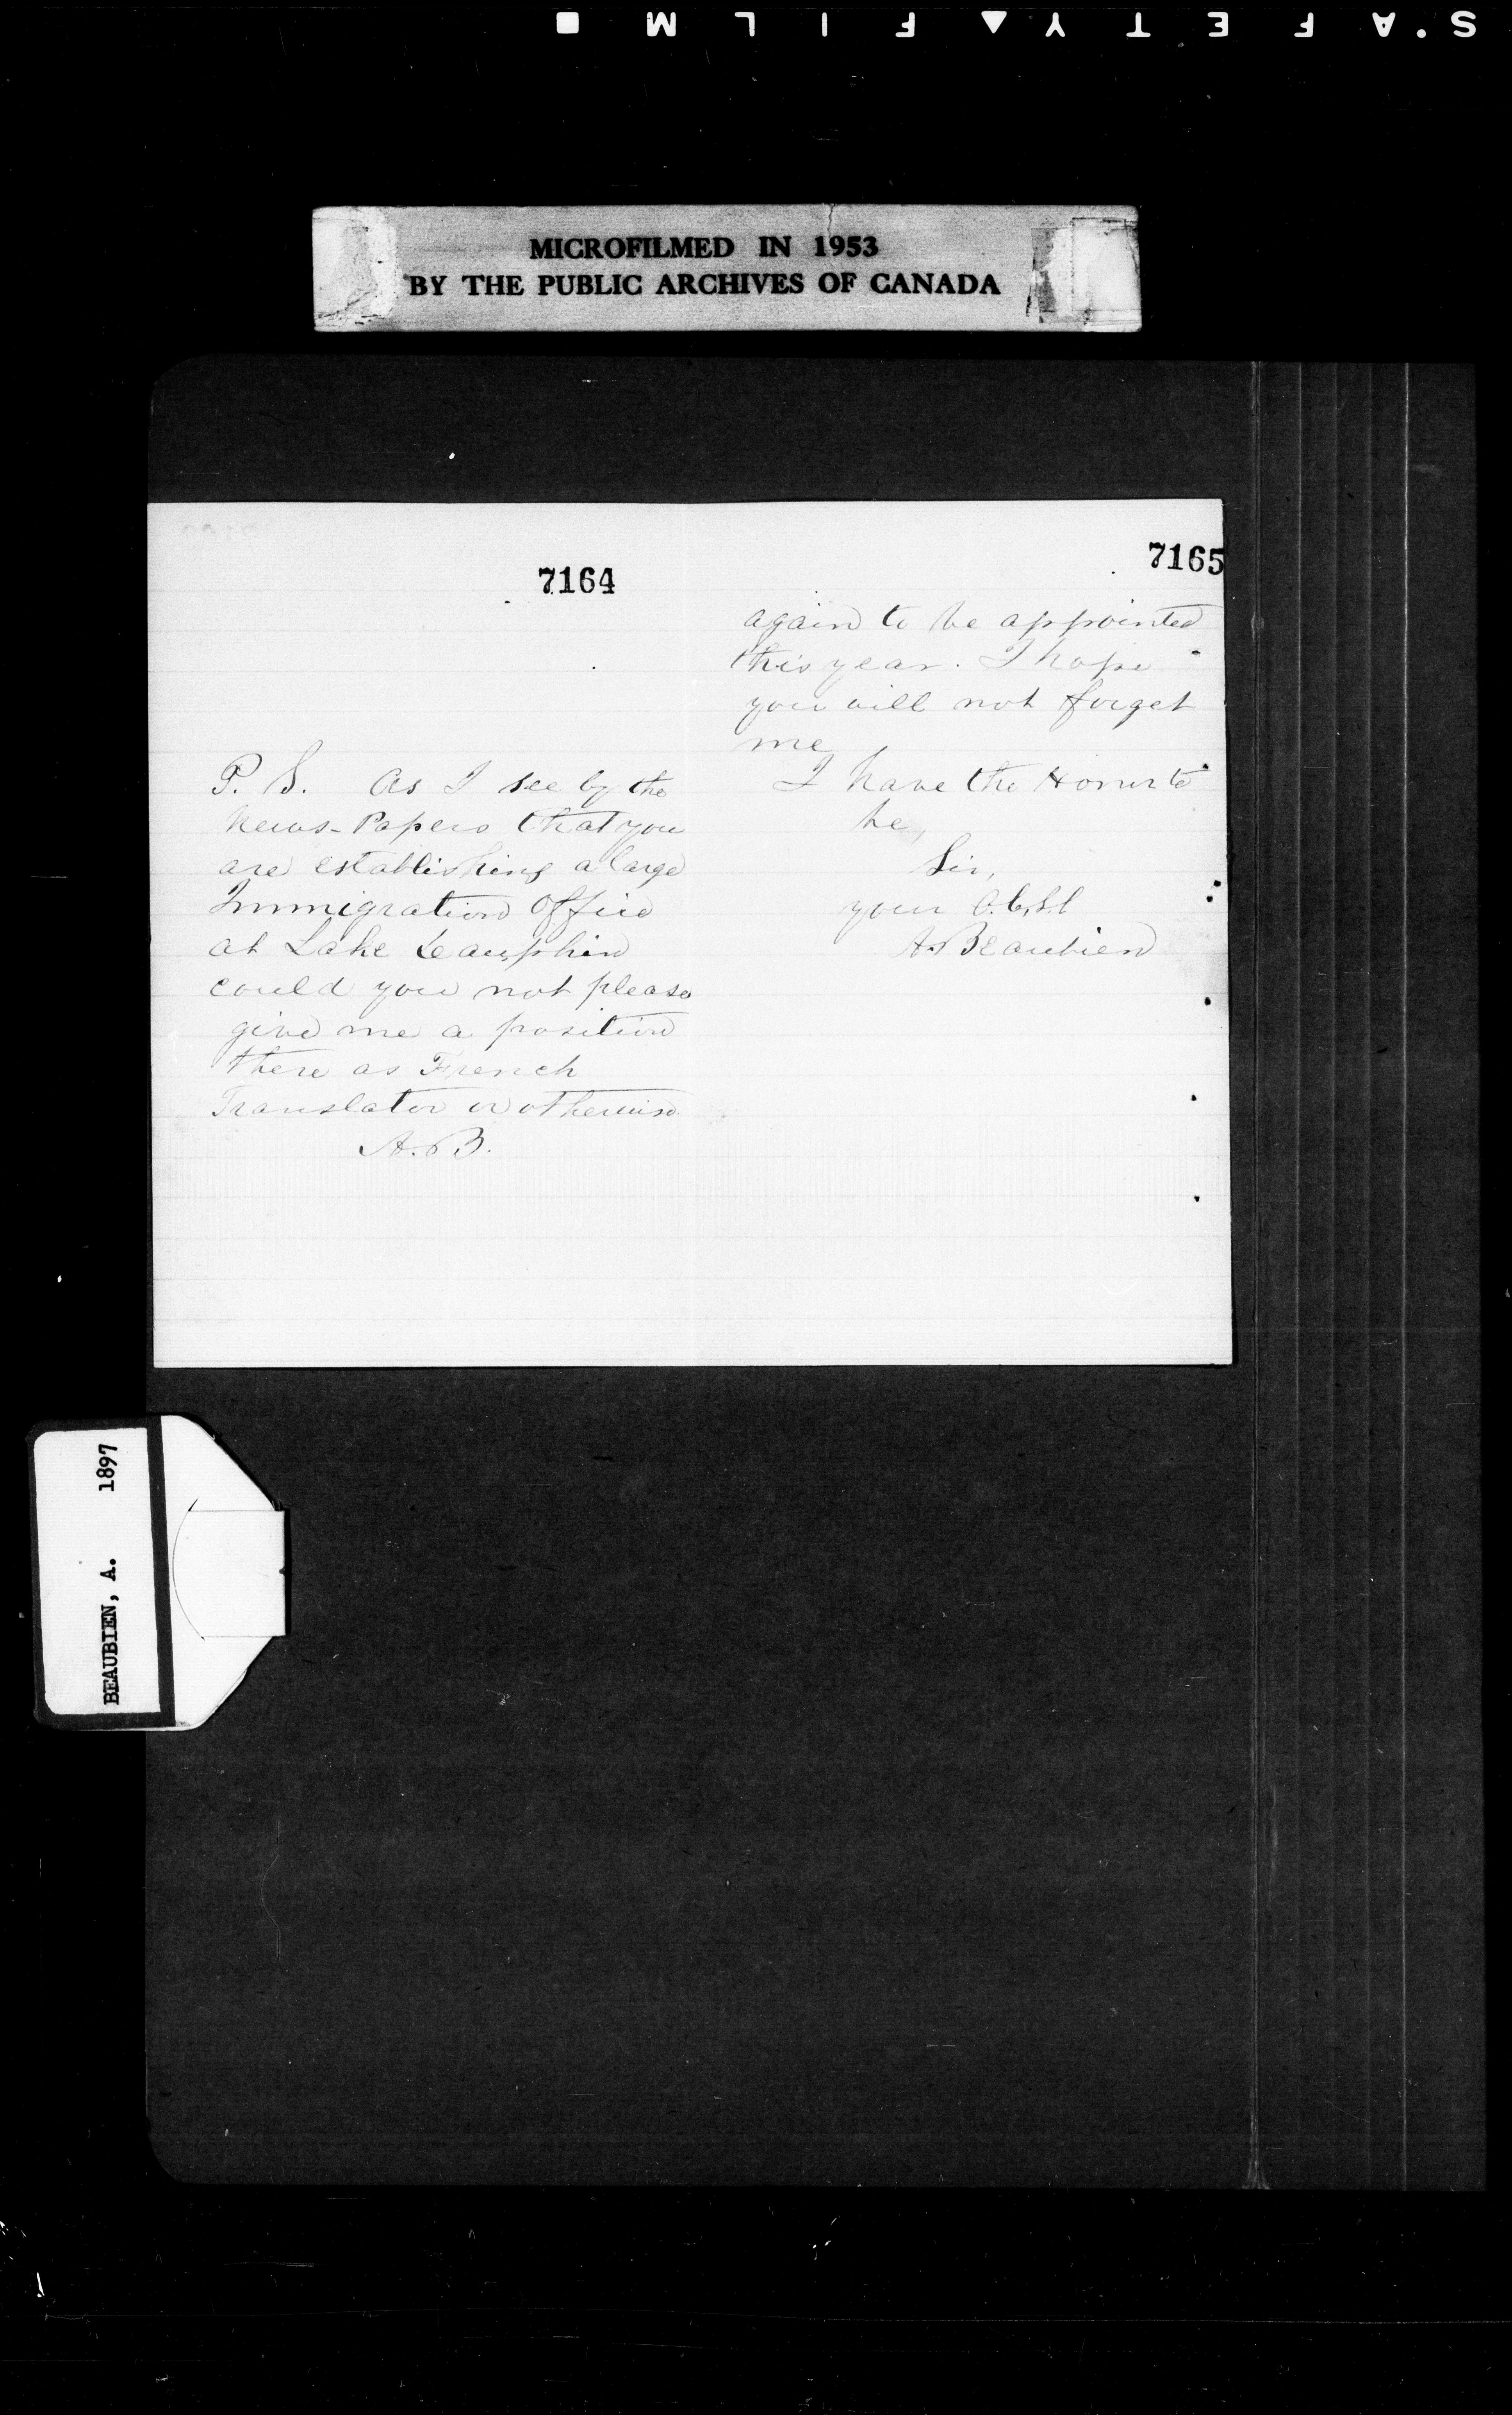 S.A.F.E.T.Y. FILM
MICROFILMED IN 1953
BY THE PUBLIC ARCHIVES OF CANADA
7164
P. S. As I see by the
News-Papers that you
are establishing a large
Immigration Office
at Lake Dauphin
could you not please
give me a position
there as French
Translator or otherwise
A. B.
7165
again to be appointed
this year. I hope
you will not forget
me
I have the Honur to
be,
Sir,
your
A. Beaubien
BEAUBIEN, A. 1897